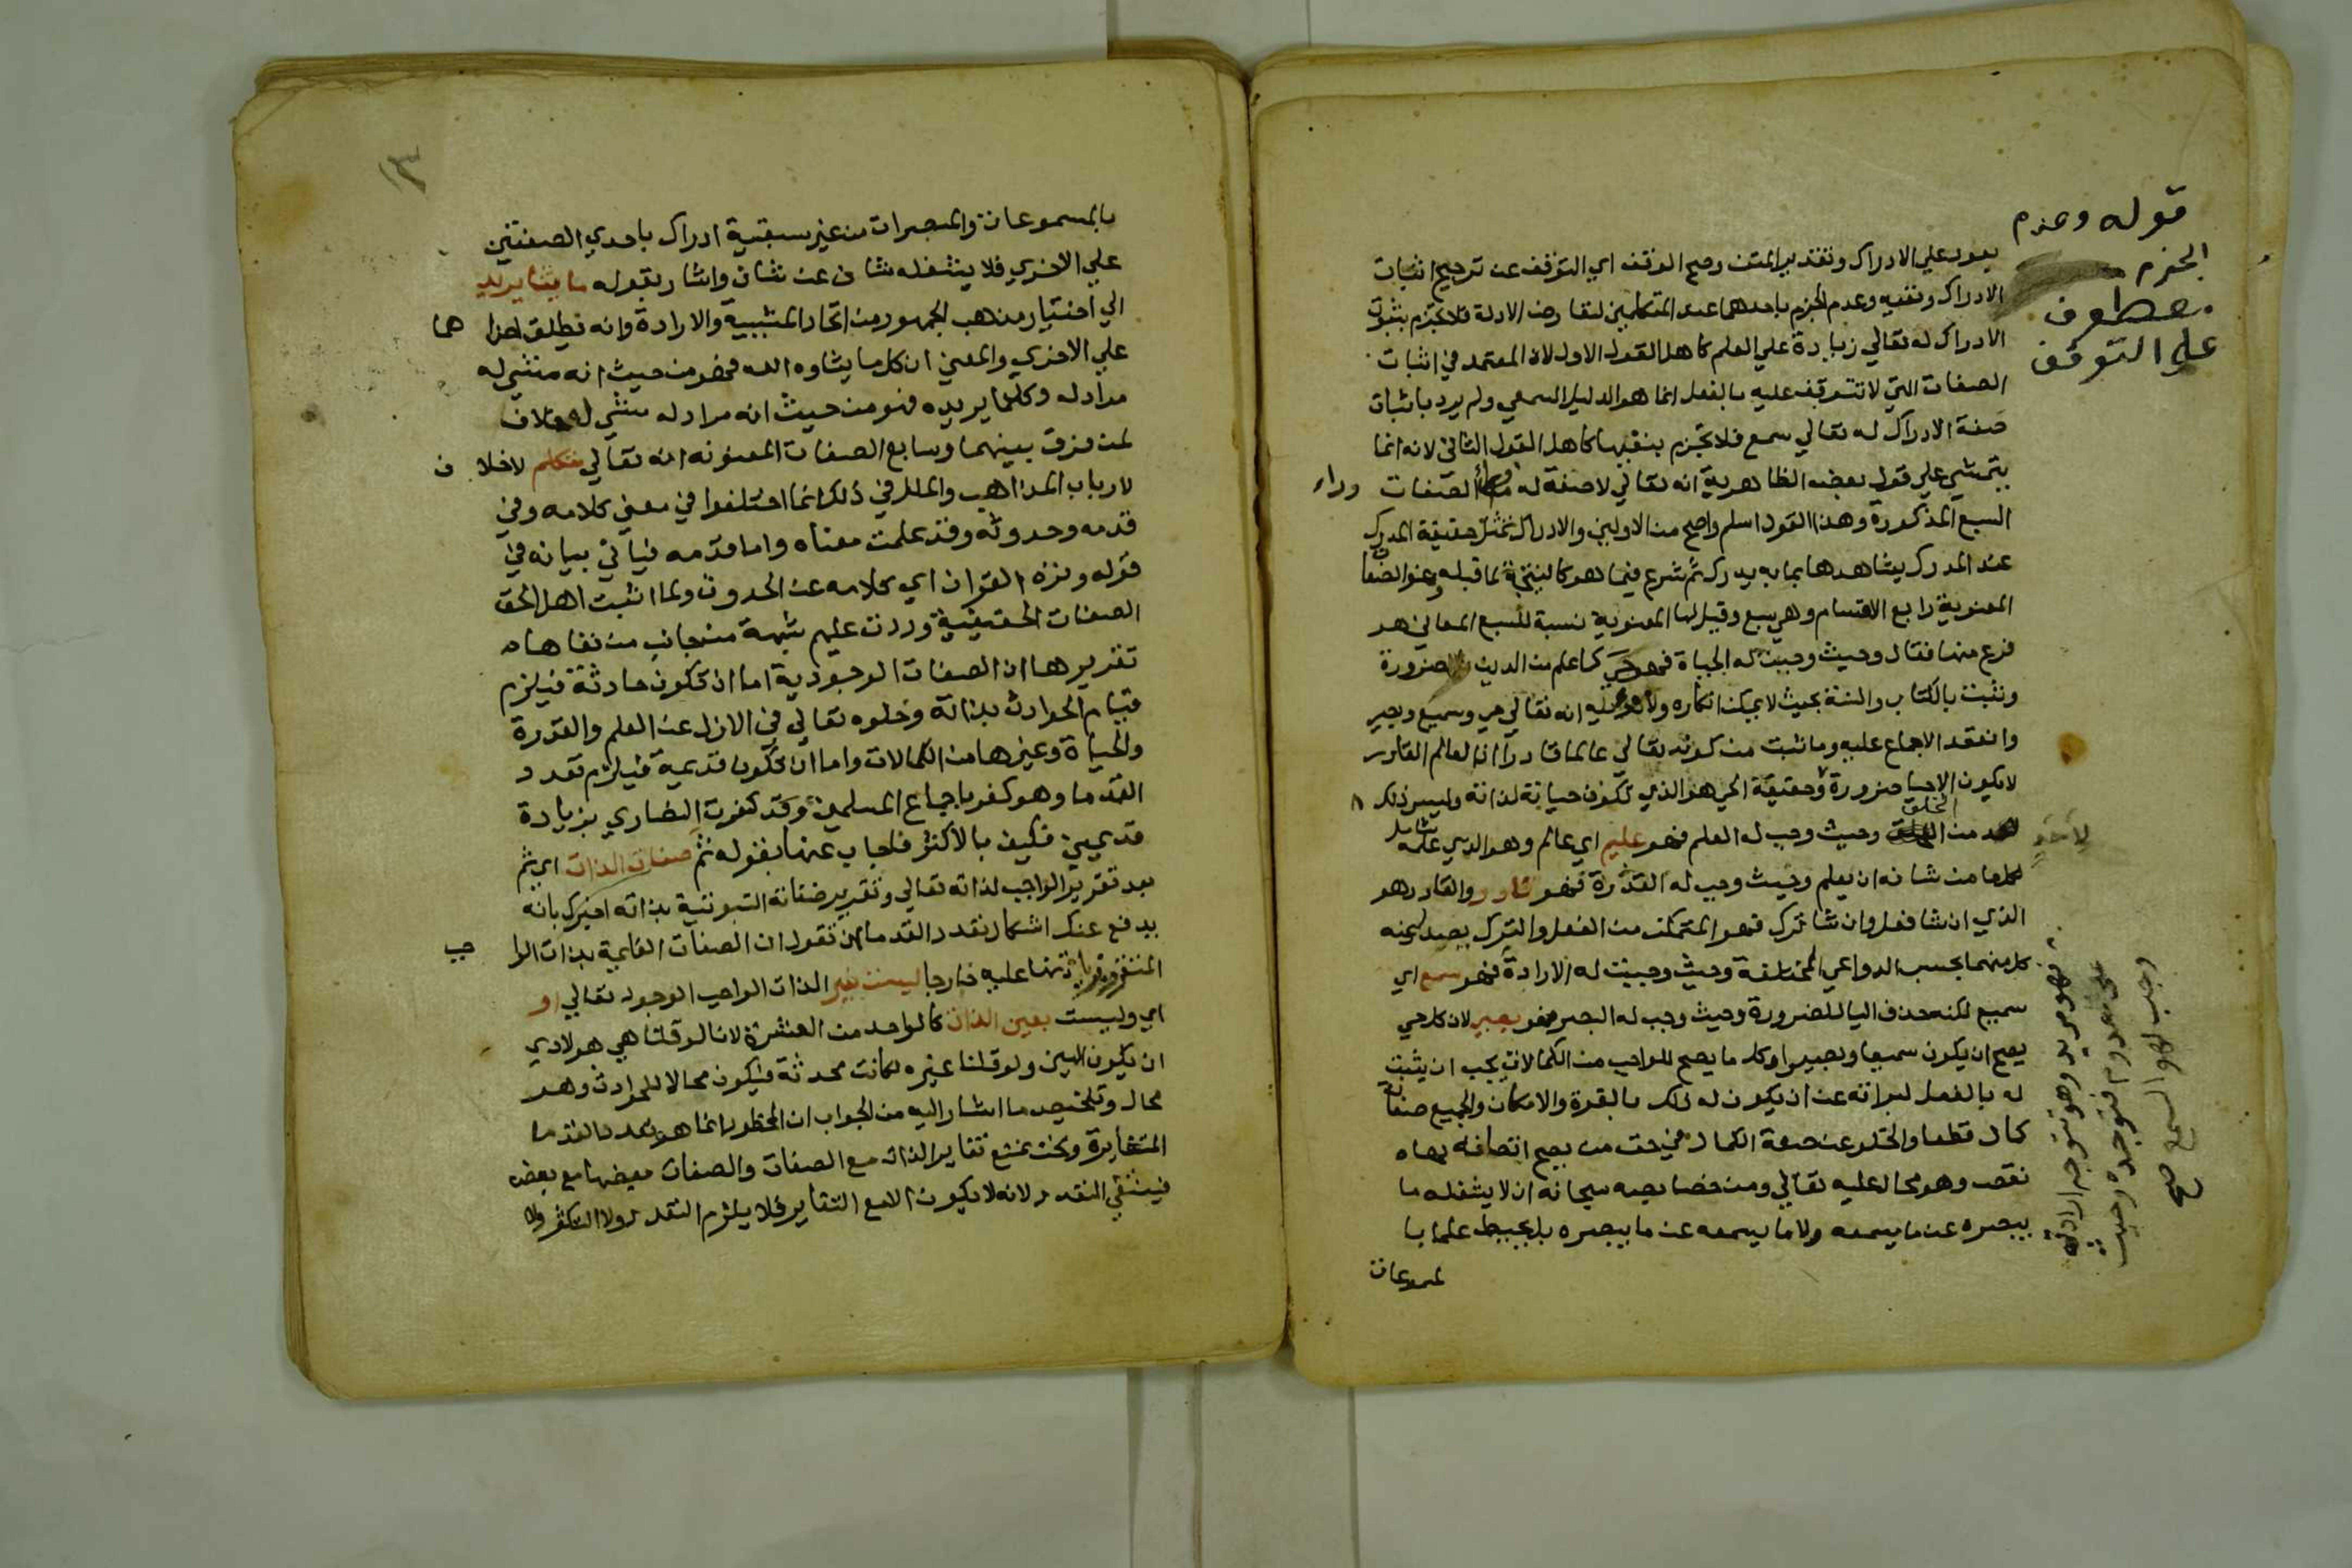 يعود علي الادراك وتقدير المتن وصح الوقف اي التوقف عن ترجيح اثبات
الادراك ونفيه وعدم الجزم باحدهما عند المتكلمين لتعارض الادلة فلا نجزم بثبوت
الادراك له تعالي زيادة علي العلم كاهل القول الاول لان المعتمد في اثبات
الصفات التي لا تتوقف عليه بالفعل انما هو الدليل السمعي ولم يرد باثبات
صفة الادراك له تعالي سمع فلا نجزم بنفيها كاهل القول الثاني لانه انما
يتمشي علي قول بعض الظاهرية انه تعالي لا صفة له وراء الصفات
السبع المذكورة وهذا القول اسلم واصح من الاولين والادراك تمثل حقيقة المدرك
عند المدرك يشاهدها بما به يدرك ثم شرع فيما هو كالنتيجة لما قبله وهو الصفات
المعنوية رابع الاقسام وهي سبع وقيل لها المعنوية نسبة للسبع المعاني هي
فرع منها فقال وحيث وجبت له الحياة فهو حي كما علم من الدين بالضرورة
وثبت بالكتاب والسنة بحيث لا يمكن انكاره ولا تاويله انه تعالي حي وسميع وبصير
وانعقد الاجماع عليه وما ثبت من كونه تعالي عالما قادرا اذ العالم القادر
لا يكون الا حيا ضرورة وحقيقة الحي هو الذي تكون حياته لذاته وليس ذلك
لاحد من الخلق وحيث وجب له العلم فهو عليم اي عالم وهو الذي علمه شامل
لكل ما من شانه ان يعلم وحيث وجب له القدرة فهو قادر والقادر هو
الذي ان شا فعل وان شا ترك فهو المتمكن من الفعل والترك يصدر عنه
كل منهما بحسب الدواعي المختلفة وحيث وجبت له الارادة فهو سمع اي
سميع لكنه حذف اليا للضرورة وحيث وجب له البصر فهو بصير لان كل حي
يصح ان يكون سميعا وبصيرا وكل ما يصح للواجب من الكمالات يجب ان يثبت
له بالفعل لبراته عن ان يكون له ذلك بالقوة والامكان والجميع صفات
كمال قطعا والخلو عن صفة الكمال في حق من يصح اتصافه بها
نقص وهو محال عليه تعالي ومن خصايصه سبحانه ان لا يشغله ما
يبصره عن ما يسمعه ولا ما يسمعه عن ما يبصره بل يحيط علما با
لمسموعات
قوله وعدم
الجزم
معطوف
علي التوقف
فهو مريد وهو تتوجه ارادته
علي معدوم فتوجده وحيث
وجب له السمع صح
١٣
بالمسموعات والمبصرات من غير سبقية ادراك باحدي الصفتين
علي الاخري فلا يشغله شان عن شان واشار بقوله ما يشا يريد
الي اختيار مذهب الجمهور من اتحاد المشيية والارادة وانه تطلق احداهما
علي الاخري والمعني ان كل ما يشاوه الله فهو من حيث انه منشي له
مراد له وكلما يريده فهو من حيث انه مراد له منشي له خلاف
لمن فرق بينهما وسابع الصفات المعنوية انه تعالي متكلم لا خلاف
لارباب المذاهب والملل في ذلك انما اختلفوا في معني كلامه وفي
قدمه وحدوثه وقد علمت معناه واما قدمه فياتي بيانه في
قوله ونزه القران اي كلامه عن الحدوث ولما اثبت اهل الحق
الصفات الحقيقية وردت عليهم شبهة من جانب من نفاها
تقريرها ان الصفات الوجودية اما ان تكون حادثة فيلزم
قيام الحوادث بذاته وخلوه تعالي في الازل عن العلم والقدرة
والحياة وغيرها من الكمالات واما ان تكون قديمة فيلزم تعدد
القدما وهو كفر باجماع المسلمين وقد كفرت النصاري بزيادة
قديمين فكيف بالاكثر فاجاب عنها بقوله ثم صفات الذات اي ثم
بعد تقرير الواجب لذاته تعالي وتقرير صفاته الثبوتية بذاته اخبرك بانه
يدفع عنك اشكال تعدد القدما بان تقول ان الصفات القايمة بذات الواجب
عليه خارجا ليست بغير الذات الواجب الوجود تعالي او
اي وليست بعين الذات كالواحد من العشرة لانا لو قلنا هي هو لادي
ان يكون الهين ولو قلنا غيره لكانت محدثة فيكون محالا للحوادث وهو
محال وتلخيص ما اشار اليه من الجواب ان المحظور انما هو تعدد القدما
المتغايرة ونحن نمنع تغاير الذات مع الصفات والصفات بعضها مع بعض
فينتفي التعدد لانه لا يكون الا مع التغاير فلا يلزم التعدد ولا التكثر ولا